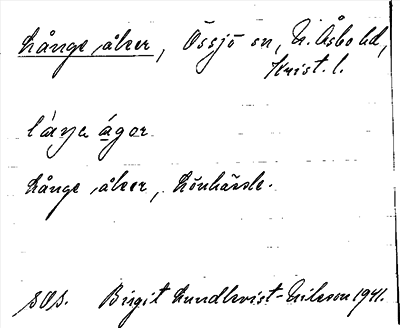 Långe åker, Össjö sn, N. Åsbo hd,
Krist. l.
låŋa ågor
Långe åker, Lönhärde.
SOS. Birgit Lundkvist-Nilsson 1941.